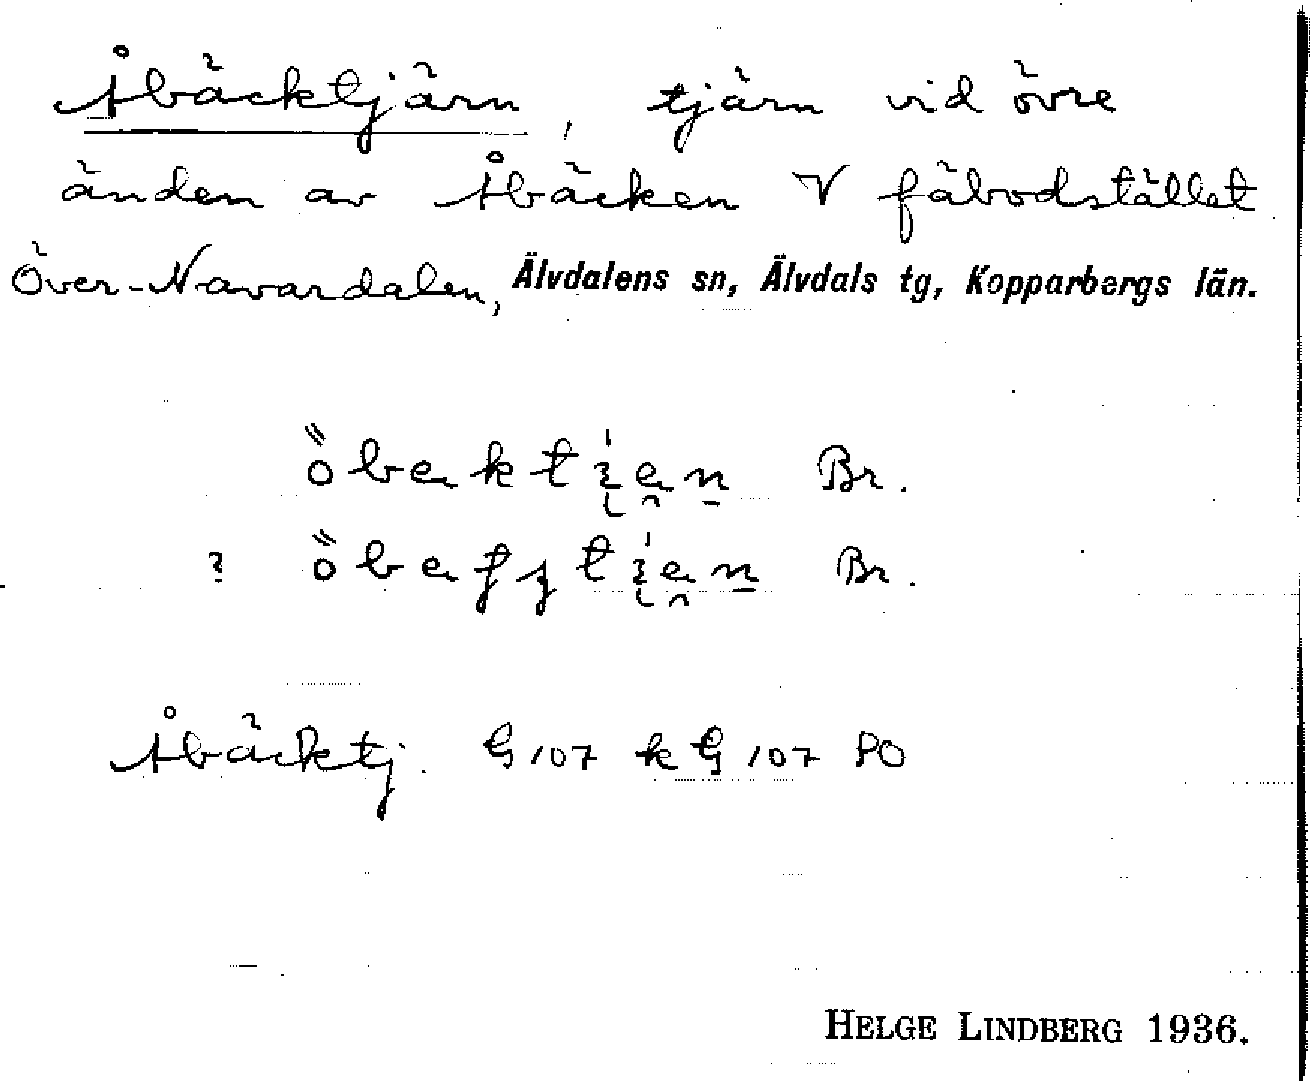 Åbäcktjärn, tjärn vid övre
änden av Åbäcken V fäbodstället
Över-Navardalen, Älvdalens sn, Älvdals tg, Kopparbergs län.
Br.
? Br.
Åbäcktj. G 107 k G 107 PO
HELGE LINDBERG 1936.